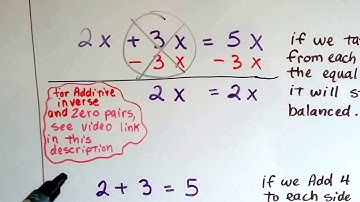 2x + 3x = 5x
- 3x - 3x
2x = 2x
if we
from each
the equal
it will
balanced.
for Additive
inverse
and Zero pairs,
see video link
in this
description
2 + 3 = 5
if we Add 4
to each side